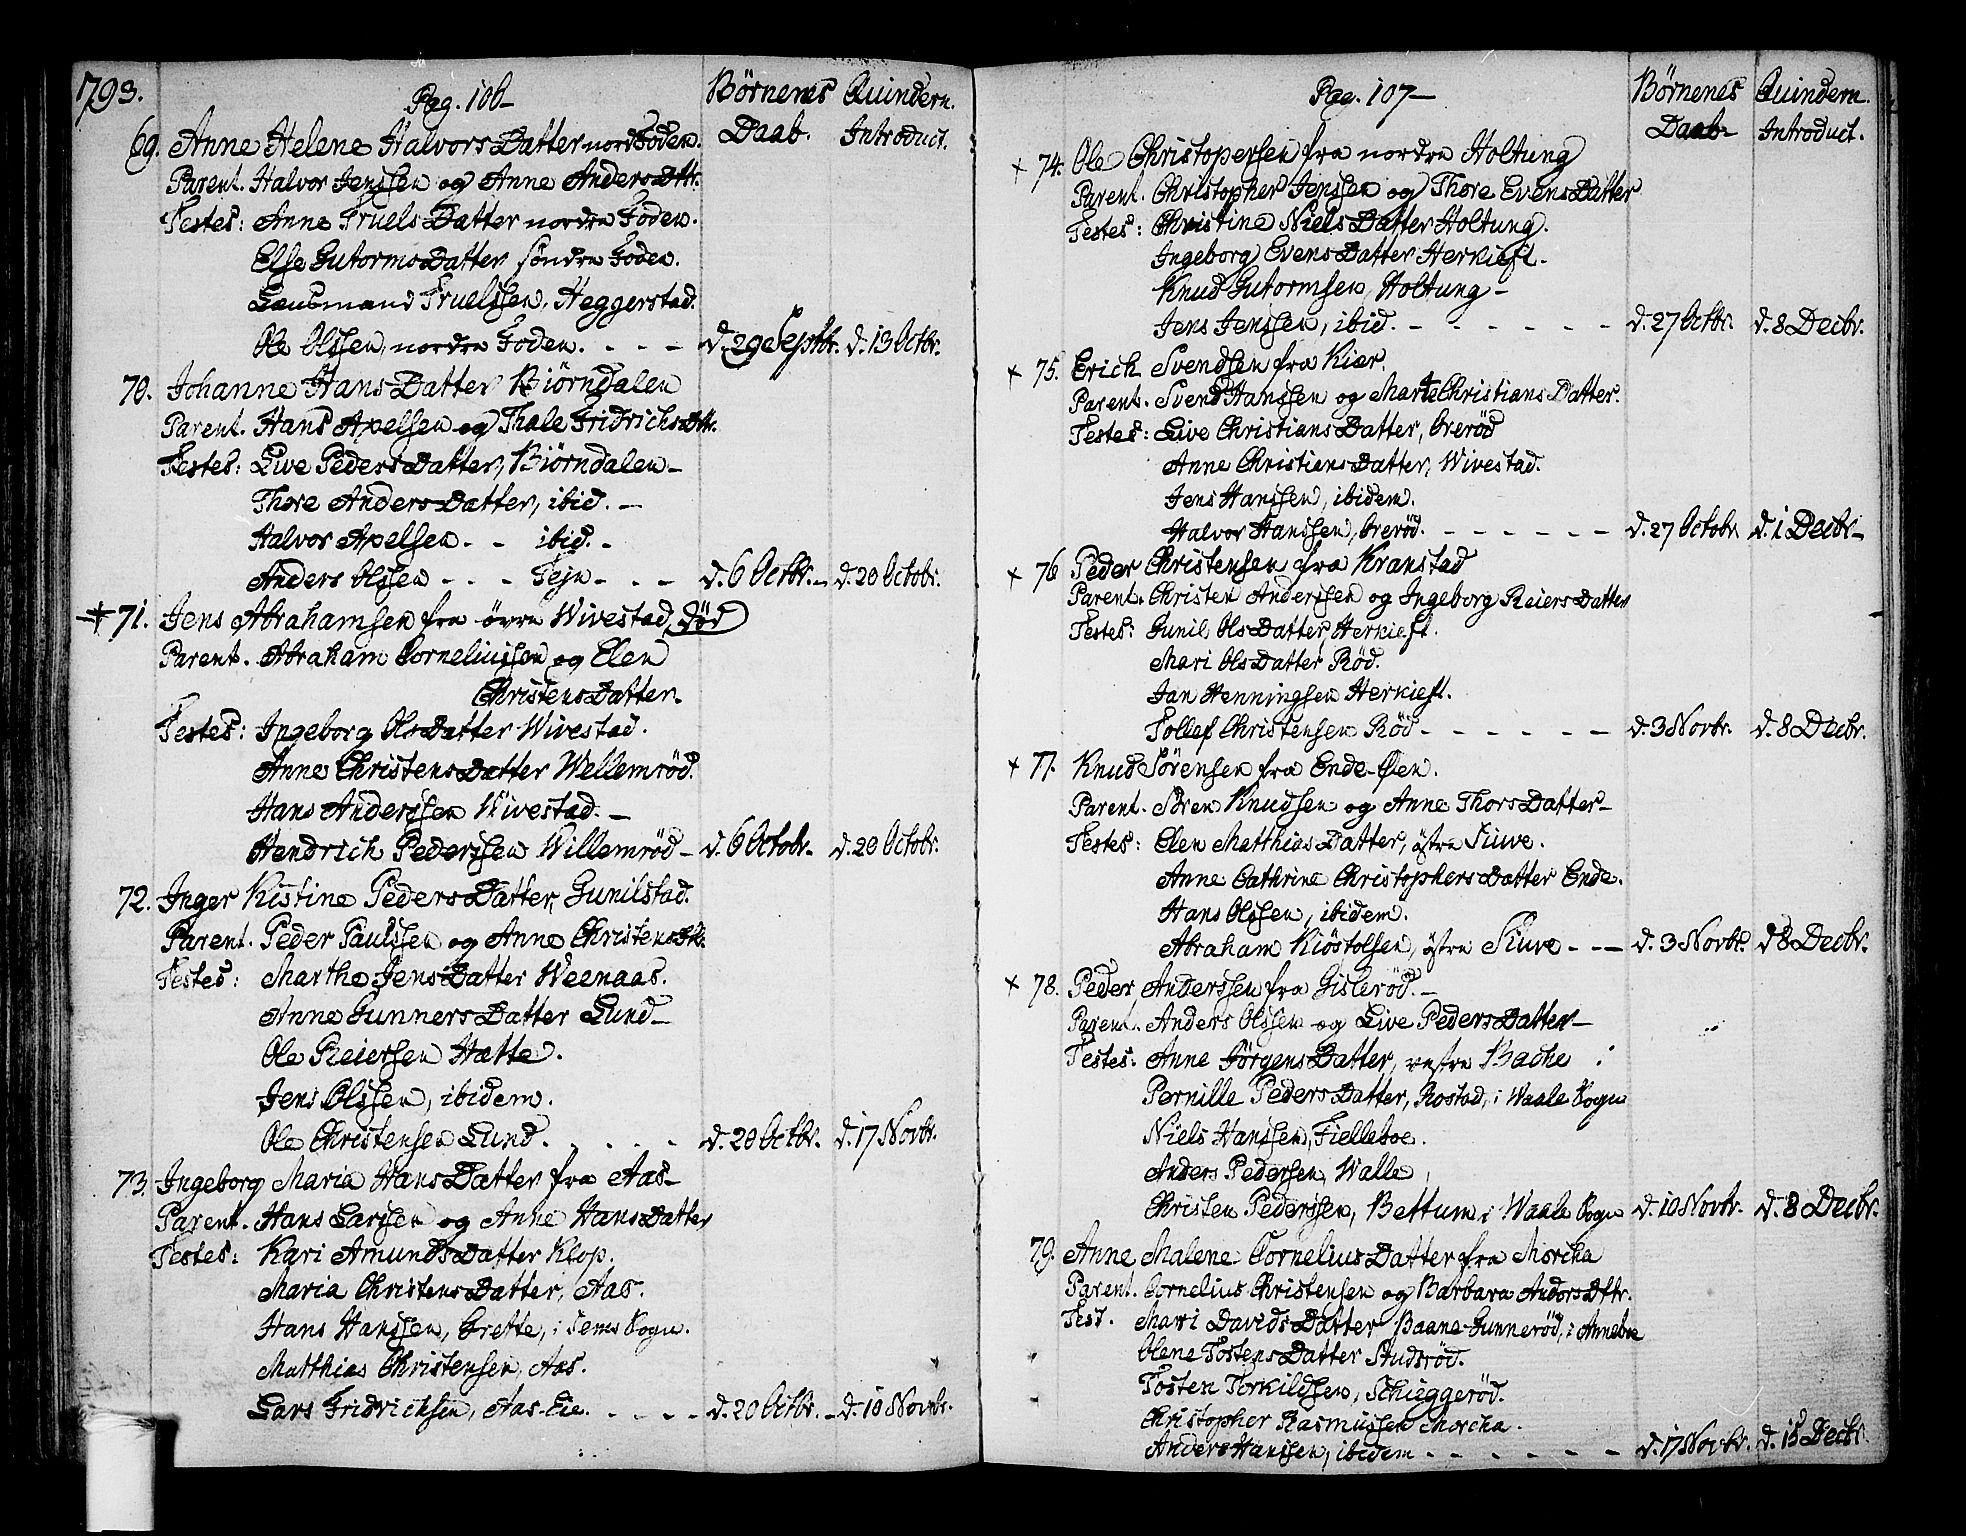 1793.
Pag. 106-
Børnenes Daab.
Quindern. Introduct.
69. Anne Helene Halvors Datter nordFoden.
Parent. Halvor Jenssen og Anne Anders Dttr.
Testes: Anne Truels Datter nordre Foden.
Else Gutorms Datter søndre Foden.
Lænsmand Truelssen, Heggerstad.
Ole Olssen, nordre Foden. - - - d. 29 Septbr. d. 13 Octbr.
70. Johanne Hans Datter Biörndalen
Parent. Hans Apelsen og Thale Fridrichs Dttr.
Testes: Live Peders Datter, Biörndalen -
Thore Anders Datter, ibid. -
Halvor Apelsen - - ibid. -
Anders Olssen - - - Tejn - - - d. 6 Octbr. - d. 20 Octobr.
+ 71. Jens Abrahamsen fra övre Wivestad, död
Parent. Abraham Corneliussen og Elen
Christens Datter.
Testes: Ingeborg Ols Datter Wivestad.
Anne Christens Datter Wellemröd.
Hans Anderssen Wivestad. -
Hendrich Pederssen Willemröd - d. 6 Octobr. - d. 20 Octobr.
72. Inger Kistine Peders Datter, Gunilstad.
Parent. Peder Paulssen og Anne Christens Dtr.
Testes: Marthe Jens Datter Weenaas.
Anne Gunners Datter Lund -
Ole Reiersen Hætte.
Jens Olssen, ibidem.
Ole Christensen Lund. - - - d. 20 Octbr. d. 17 Novbr.
73. Ingeborg Maria Hans Datter fra Aas -
Parent. Hans Larssen og Anne Hans Datter
Testes: Kari Amunds Datter Klop.
Maria Christens Datter, Aas.
Hans Hanssen, Grette, i Sems Sogn.
Matthias Christensen, Aas.
Lars Fridrichsen, Aas-Eie. - - - - d. 20 Octbr. - d. 10 Novbr.
Pag. 107-
Børnenes Daab
Quindern. Introduct.
+ 74. Ole Christopersen fra nordre Holtung
Parent. Christopher Jenssen og Thore Evens Datter
Testes: Christine Niels Datter Holtung.
Ingeborg Evens Datter Herkiest.
Knud Gutormsen, Holtung -
Jens Jenssen, ibid. - - - - - - d. 27 Octbr. d. 8 Decbr.
+ 75. Erich Svendsen fra Kiær.
Parent. Svend Hanssen og Marte Christians Datter.
Testes: Live Christians Datter, Oreröd
Anne Christians Datter, Wivestad.
Jens Hanssen, ibidem.
Halvor Hanssen, Oreröd. - - - - - - d. 27 Octobr d. 1 Decbr -
+ 76 Peder Christensen fra Kranstad
Parent. Christen Anderssen og Ingeborg Reiers Datter
Testes: Gunil Ols Datter Herkiest.
Mari Ols Datter Röd.
Jan Henningsen Herkiest.
Tollef Christensen Röd - - - - - - d. 3 Novbr. d. 8 Decbr.
+ 77. Knud Sörensen fra Ende-Øen.
Parent. Sören Knudsen og Anne Thors Datter -
Testes: Elen Matthias Datter, östre Siuve.
Anne Cathrine Christophers Datter Ende.
Hans Olssen, ibidem.
Abraham Kiöstolsen, östre Siuve - - - d. 3 Novbr. d 8 Decbr.
+ 78. Peder Anderssen fra Gisleröd. -
Parent. Anders Olssen og Live Peders Datter -
Testes: Anne Jörgens Datter, vestre Bache
Pernille Peders Datter, Rostad, i Waale Sogn
Niels Hanssen, Fielleboe.
Anders Pedersen, Walle
Christen Pederssen, Bettum i Waale Sogn d. 10 Novbr. d. 8 Decbr.
79. Anne Malene Cornelius Datter fra Morcha
Parent. Cornelius Christensen og Barbara Anders Dttr.
Test. Mari Davids Datter Baane-Gunneröd, i Anneboe
Olene Tostens Datter Studsröd.
Tosten Torkildsen, Schieggeröd.
Christopher Rasmussen Morcha.
Anders Hanssen, ibidem - - - - - - d. 17 Novbr. d. 15 Decbr.